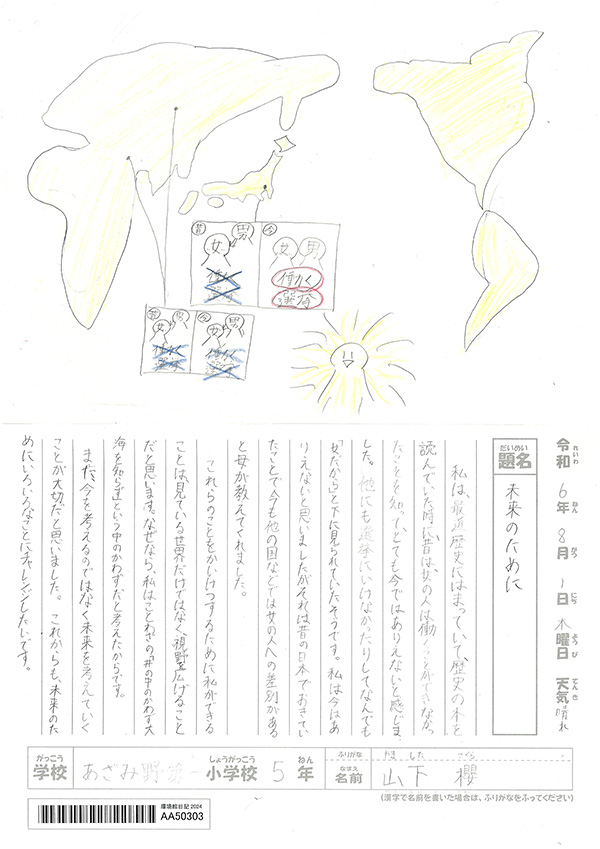 昔
女
男
働く
選挙
今
女
男
働く
選挙
昔
女
男
働く
選挙
今
女
男
働く
選挙
令和 6年 8月 1日 木曜日 天気 晴れ
れいわ ねん がつ にち ようび てんき
だいめい
題名
未来のために
私は、最近歴史にはまっていて歴史の本を
読んでいた時に昔は、女の人は働くことができなかっ
たことを知って、とても今ではありえないと感じま
した。他にも選挙にいけなかったりしてなんでも
「女だから」と下に見られていたそうです。私は今はあ
りえないと思いましたがそれは昔の日本でおきてい
たことで今も他の国などでは女の人への差別がある
と母が教えてくれました。
これらのことをかいけつするために私ができる
ことは見ている世界だけではなく、視野を広げること
だと思います。なぜなら、私はことわざの「井の中のかわず大
海を知らず」という中のかわずだと考えたからです。
また、今を考えるのではなく未来を考えていく
ことが大切だと思いました。これからも、未来のた
めにいろいろなことにチャレンジしたいです。
がっこう しょうがっこう ねん
学校 あざみ野第一 小学校 5 年
ふりがな やま した さくら
なまえ
名前 山下 櫻
(漢字で名前を書いた場合は、ふりがなをふってください)
環境絵日記 2024
AA50303